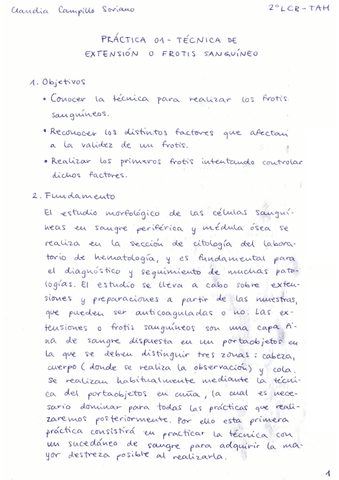 Claudia Campillo Soriano 2º LCB-TAH
PRÁCTICA 01 - TÉCNICA DE
EXTENSIÓN O FROTIS SANGUÍNEO
1. Objetivos
• Conocer la técnica para realizar los frotis
sanguíneos.
• Reconocer los distintos factores que afectan
a la validez de un frotis.
• Realizar los primeros frotis intentando controlar
dichos factores.
2. Fundamento
El estudio morfológico de las células sanguí-
neas en sangre periférica y médula ósea se
realiza en la sección de citología del labora-
torio de hematología, y es fundamental para
el diagnóstico y seguimiento de muchas pato-
logías. El estudio se lleva a cabo sobre exten-
siones y preparaciones a partir de las muestras,
que pueden ser anticoaguladas o no. Las ex-
tensiones o frotis sanguíneos son una capa fi-
na de sangre dispuesta en un portaobjetos en
la que se deben distinguir tres zonas: cabeza,
cuerpo (donde se realiza la observación) y cola.
Se realizan habitualmente mediante la técni-
ca del portaobjetos en cuña, la cual es nece-
sario dominar para todas las prácticas que reali-
zaremos posteriormente. Por ello esta primera
práctica consistirá en practicar la técnica con
un sucedáneo de sangre para adquirir la ma-
yor destreza posible al realizarla.
1